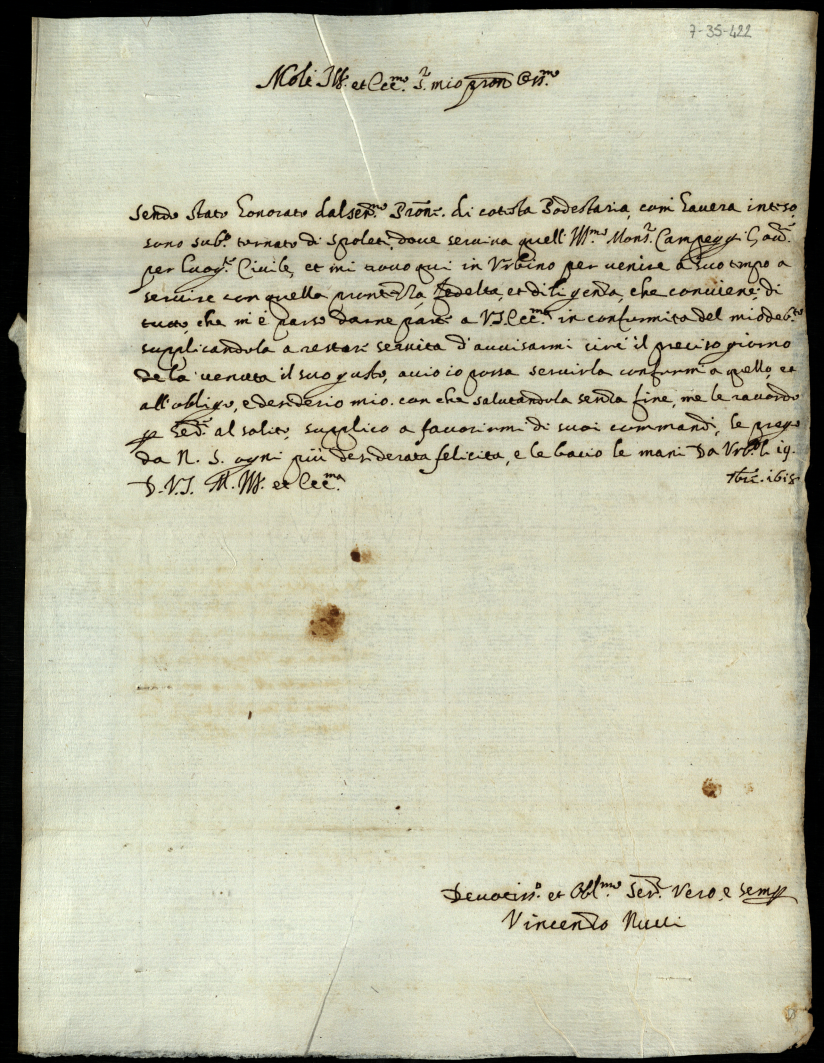 7-35-422
Molto Ill. et Ecc.mo S.r mio pron Oss.mo
Sendo stato honorato dal ser.mo Prone. di cotesta Podestaria, com' havera inteso,
sono sub.o tornato di Spoleti, dove serviva quell' Ill.mo Mons.r Campeggi Gov.r
per Luog.te Civile, et mi trovo qui in Urbino per venire a suo tempo a
servire con quella prontezza fedelta, et diligenza, che conviene; di
tutto, che m'è parso darne parte a V.S. Ecc.ma in conformita del mio deb.to
supplicandola a restar servita d'avvisarmi circ' il preciso giorno
de la venuta il suo gusto, acciò io possa servirla conform' a quello, et
all'obligo, e desiderio mio. con che salutandola senza fine, me le racordo
p Ser.r al solito, supplico a favorirmi di suoi commandi, le prego
da N. S. ogni più desiderata felicita, e le bacio le mani Da Urb.o li 19.
D. V. S. M. Ill. et Ecc.ma 9bre. 1618
Devotiss.o et Obl.mo Ser.r Vero, e semp
Vincenzo Nucci